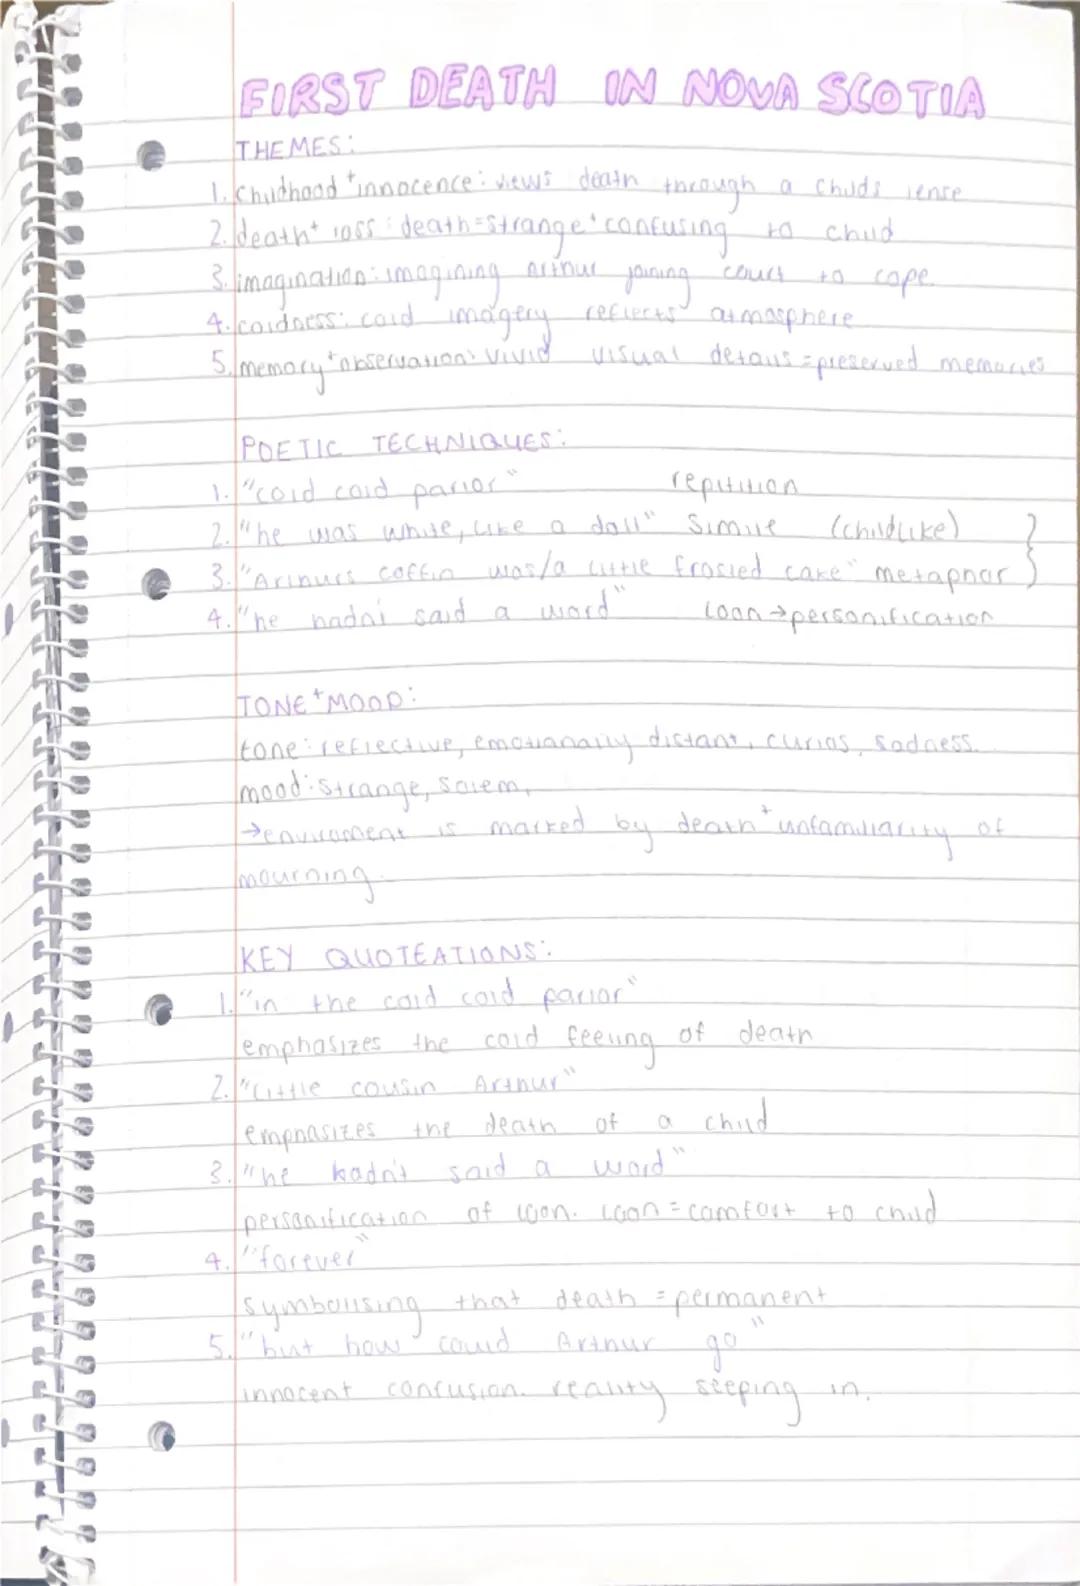 FIRST DEATH IN NOVA SCOTIA
THEMES:
1. Childhood + innocence: views death through a childs sense
2. death + loss: death = strange + confusing to child
3. imagination: imagining Arthur joining court to cope.
4. coldness: cold imagery reflects atmosphere
5. memory + observation: vivid visual details = preserved memories
POETIC TECHNIQUES:
1. "cold cold parlor" repitition
2. "he was white, like a doll" simile (childlike)
3. "Arthurs coffin was/a little frosted cake" metaphor
4. "he hadnt said a word" loon → personification
TONE + MOOD:
tone: reflective, emotionally distant, curios, sadness.
mood: strange, solem,
→ enviroment is marked by death + unfamiliarity of
mourning.
KEY QUOTEATIONS:
1. "in the cold cold parlor"
emphasizes the cold feeling of death
2. "Little cousin Arthur"
emphasizes the death of a child
3. "he hadn't said a word"
personification of loon. loon = comfort to child
4. "forever"
symbolising that death = permanent
5. "but how could Arthur go"
innocent confusion. reality seeping in.